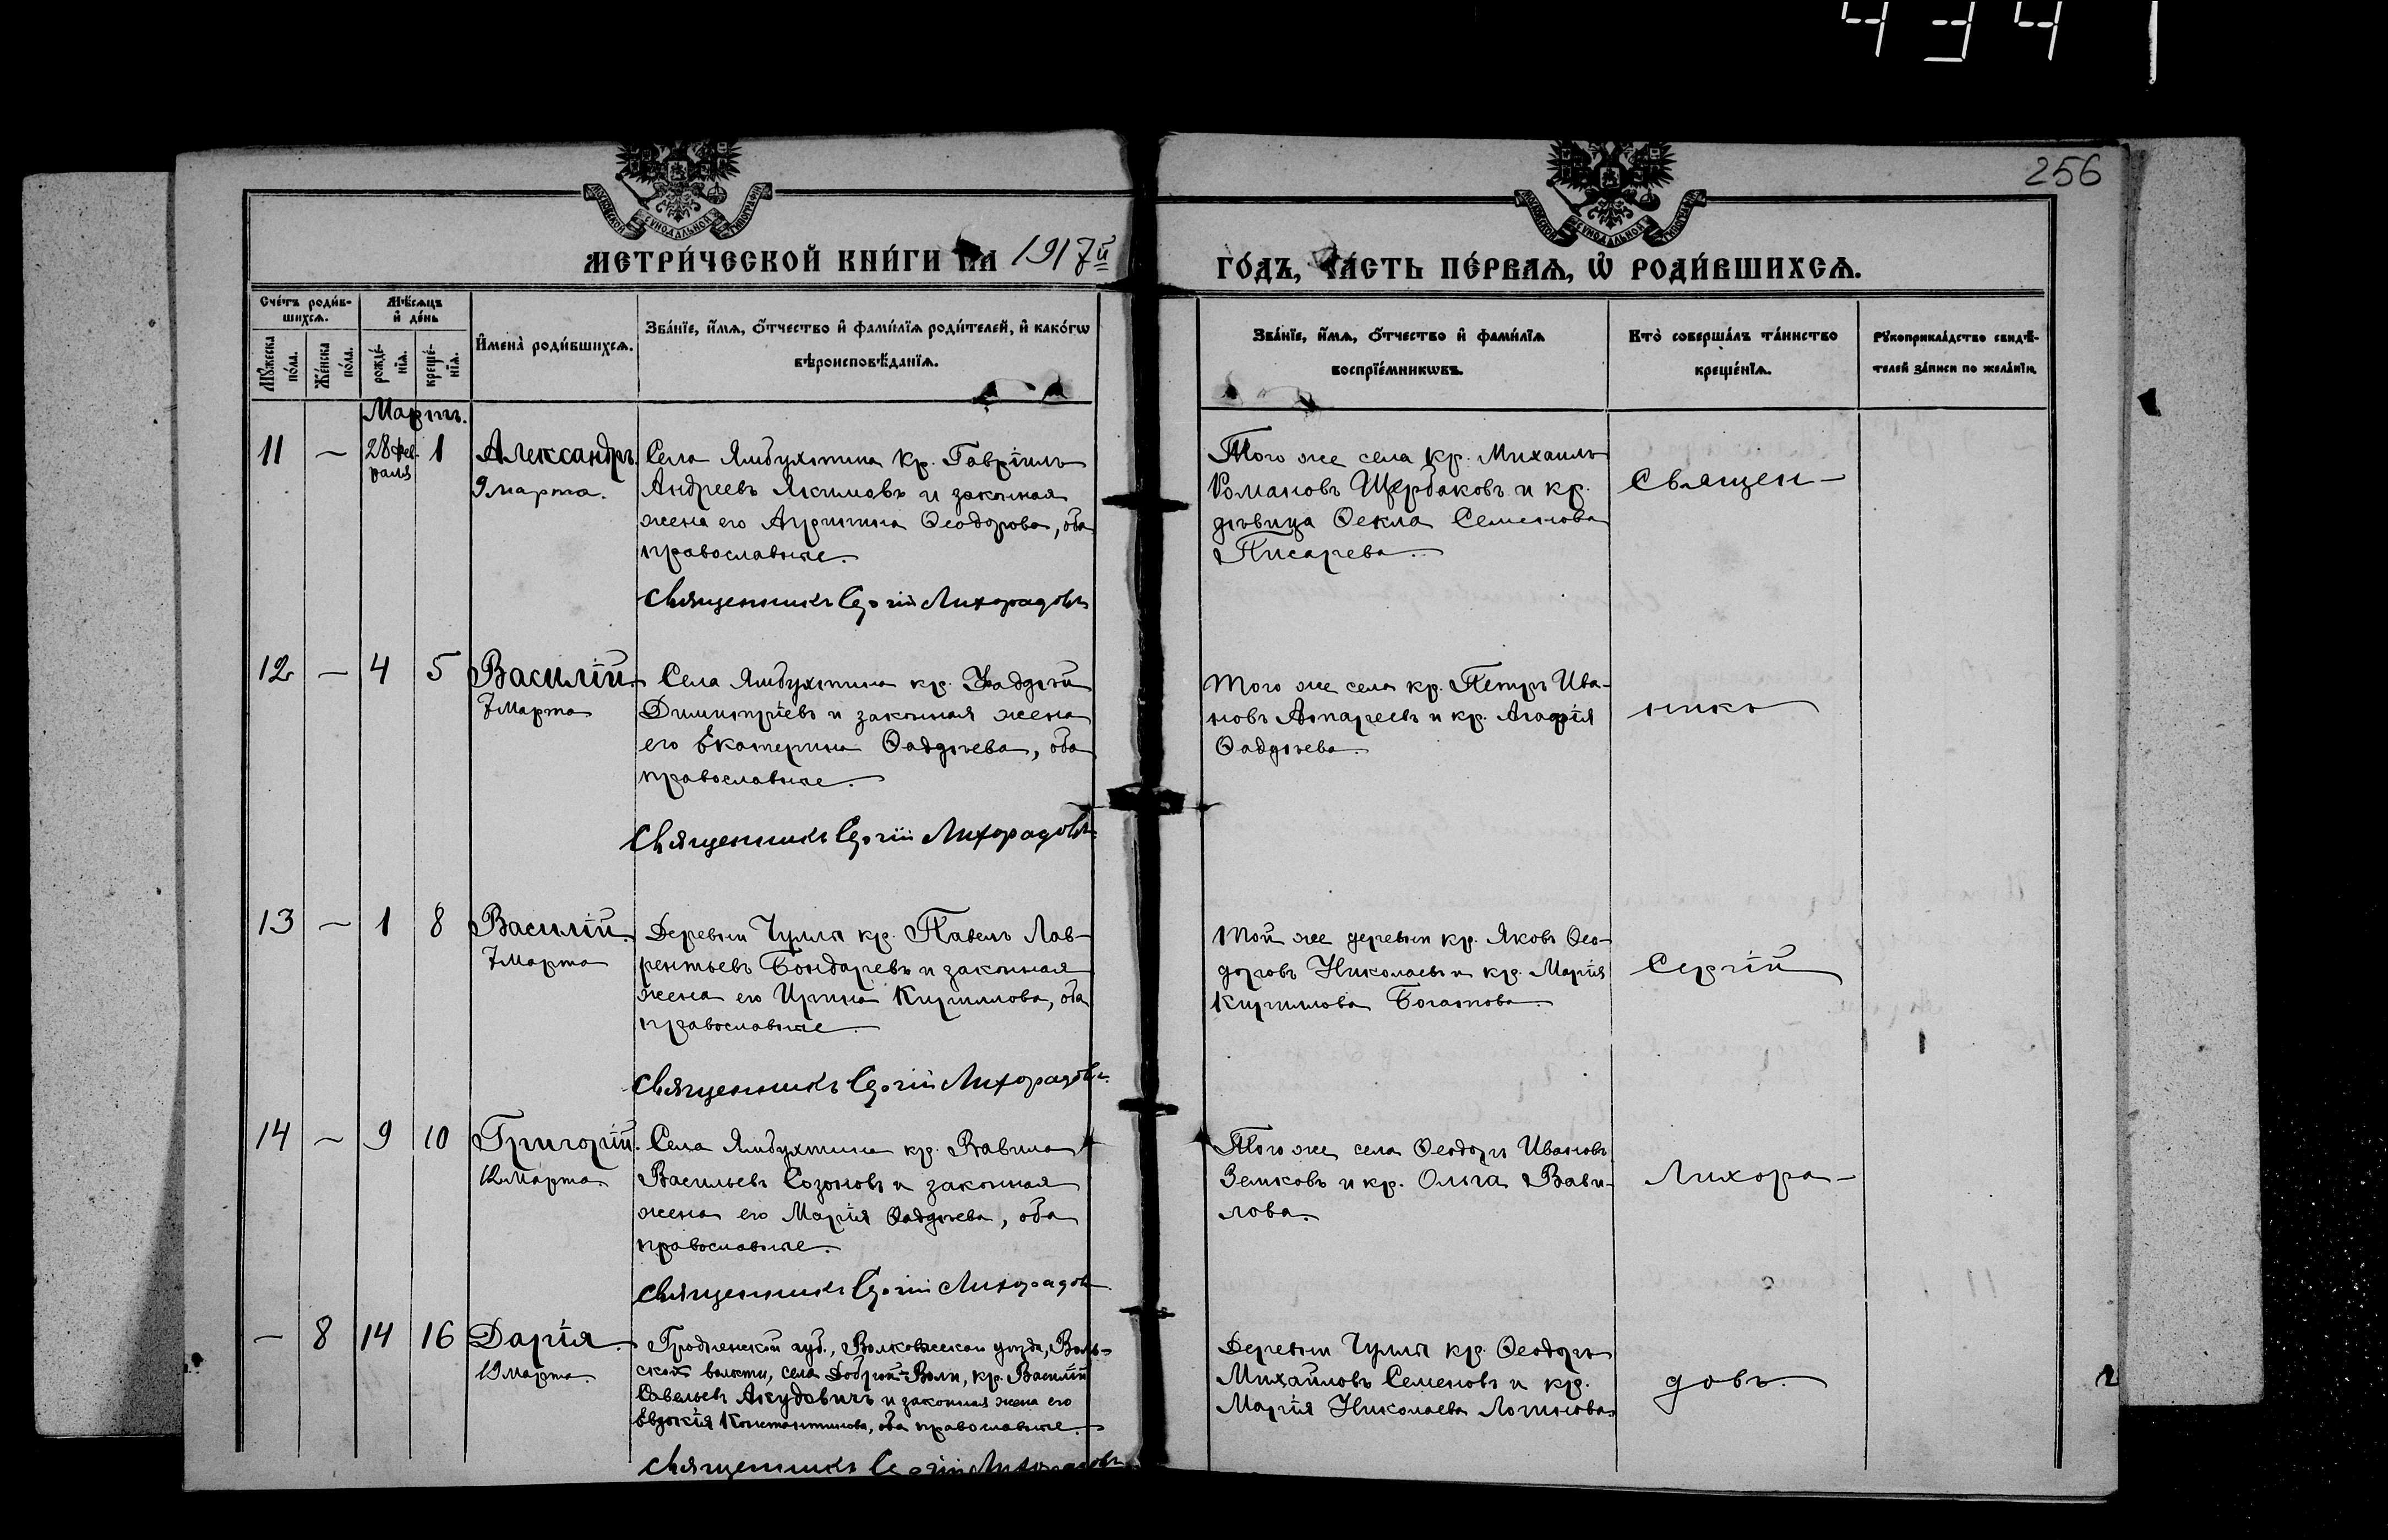 4341
256
МЕТРИ́ЧЕСКОЙ КНИ́ГИ НА 1917й
ГО́ДЪ, ЧА́СТЬ ПЕ́РВАѦ, Ѡ҆ РОДИ́ВШИХСѦ.
Сче́тъ роди́в-
шихсѧ.
Мꙋ́жеска по́ла.
Же́нска по́ла.
Мѣ́сѧцъ
и҆ де́нь
рожде́-
нїѧ.
креще́-
нїѧ.
И҆мена̀ роди́вшихсѧ.
Зва́нїе, и҆́мѧ, ѻ҆́тчество и҆ фами́лїѧ роди́телей, и҆ како́гѡ
вѣроисповѣ́данїѧ.
Зва́нїе, и҆́мѧ, ѻ҆́тчество и҆ фами́лїѧ
воспрїе́мникѡвъ.
Кто̀ соверша́лъ та́инство
креще́нїѧ.
Рꙋкоприкла́дство свидѣ́-
телей за́писи по жела́нїю.
Мартъ.
11 – 28 фев-
раля 1 Александръ.
9 марта.
Села Ямбухтина кр. Гавріилъ
Андреевъ Якимовъ и законная
жена его Агриппина Ѳеодорова, оба
православные.
Священникъ Сергій Лихорадовъ
Того же села кр. Михаилъ
Романовъ Щербаковъ и кр.
дѣвица Ѳекла Семенова
Писарева.
Священ-
12 – 4 5 Василій.
7 Марта
Села Ямбухтина кр. Ѳаддѣй
Димитріевъ и законная жена
его Екатерина Ѳаддѣева, оба
православные.
Священникъ Сергій Лихорадовъ
Того же села кр. Петръ Ива-
новъ и кр. Агафія
Ѳаддѣева.
никъ
13 – 1 8 Василій.
7 Марта
Деревни Чулпи кр. Павелъ Лав-
рентьевъ Бондаревъ и законная
жена его Ирина Кириллова, оба
православные.
Священникъ Сергій Лихорадовъ.
Той же деревни кр. Яковъ Ѳео-
доровъ Николаевъ и кр. Марія
Кириллова Богатова.
Сергій
14 – 9 10 Григорій.
12 Марта
Села Ямбухтина кр. Вавила
Васильевъ Созоновъ и законная
жена его Марія Ѳаддѣева, оба
православные.
Священникъ Сергій Лихорадовъ
Того же села Ѳеодоръ Ивановъ
Земсковъ и кр. Ольга Вави-
лова.
Лихора-
– 8 14 16 Дарія.
19 марта.
Гродненской губ., Волковысскаго уѣзда, Воль-
ской волости, села Доброй-Воли, кр. Василій
Савельевъ Акудовичъ и законная жена его
Евдокія Константинова, оба православные.
Священникъ Сергій Лихорадовъ
Деревни Чулпи кр. Ѳеодоръ
Михайловъ Семеновъ и кр.
Марія Николаева Логинова.
довъ.